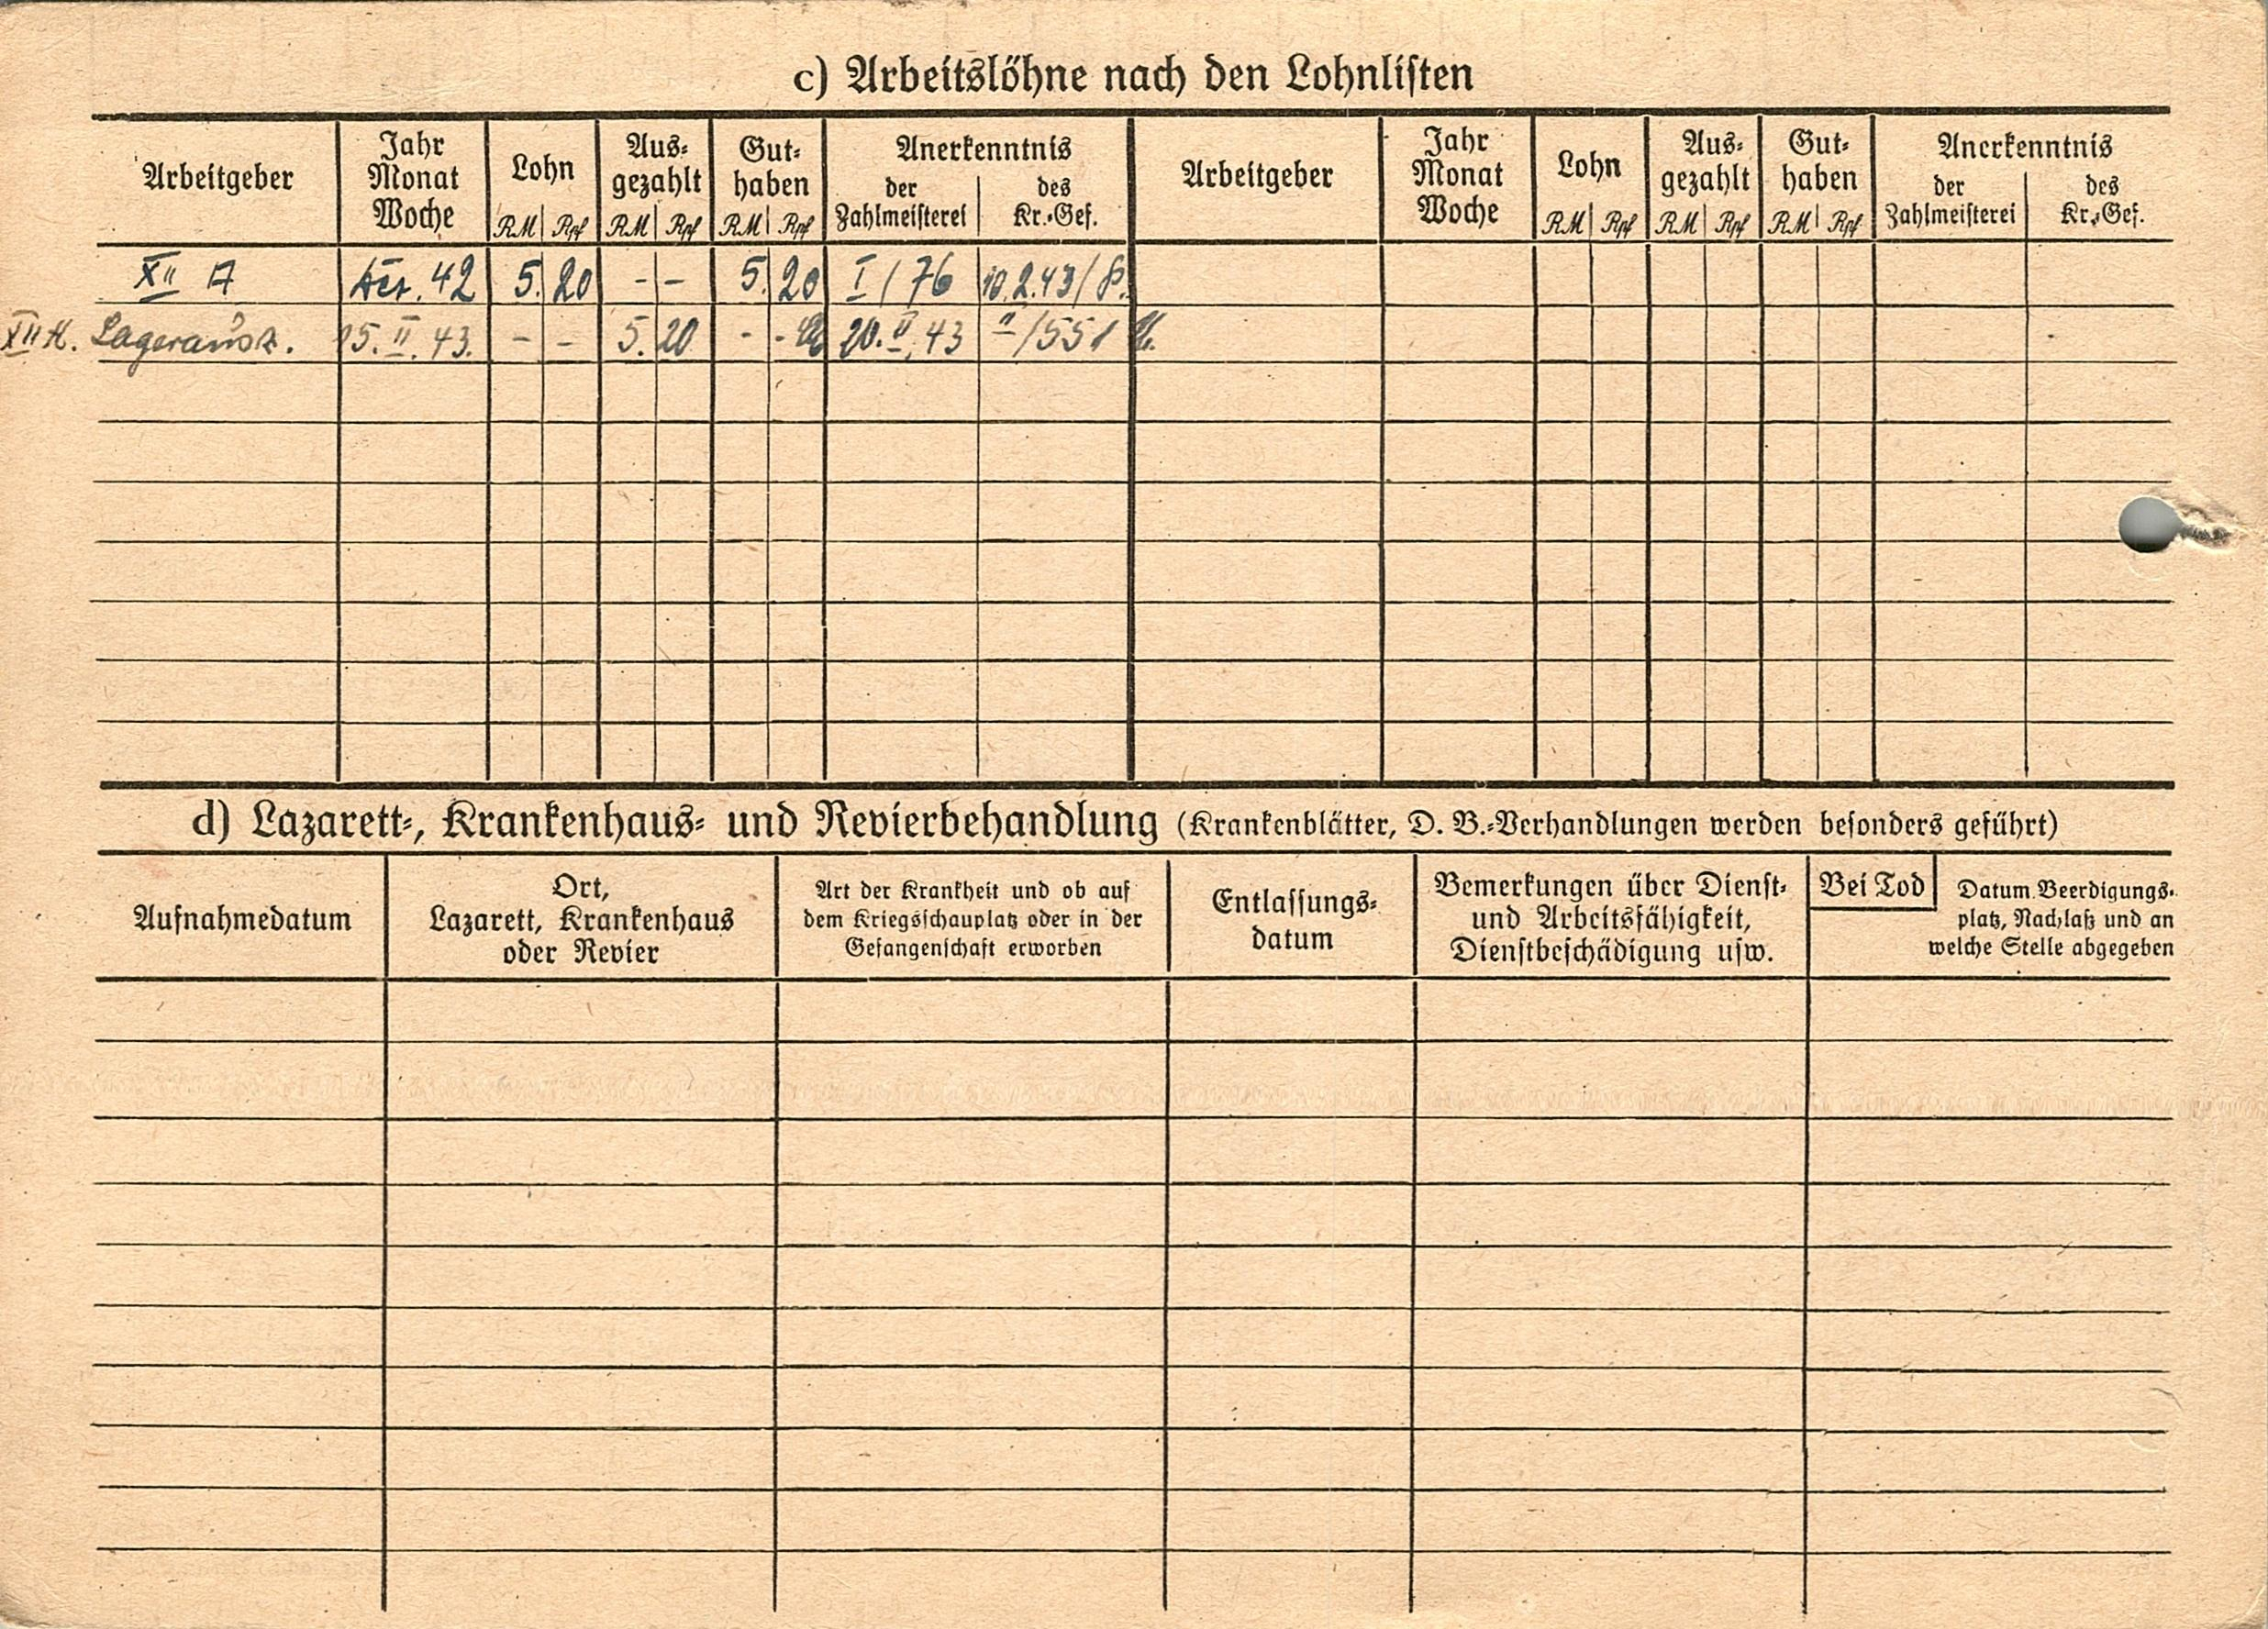 c) Arbeitslöhne nach den Lohnlisten
Arbeitgeber Jahr Monat Woche Lohn RM Rpf Aus-gezahlt RM Rpf Gut-haben RM Rpf Anerkenntnis der Zahlmeisterei des Kr.-Gef. Arbeitgeber Jahr Monat Woche Lohn RM Rpf Aus-gezahlt RM Rpf Gut-haben RM Rpf Anerkenntnis der Zahlmeisterei des Kr.-Gef.
XII A 42 5. 20 - - 5. 20 I / 76 10.2.43 /
XII Lagerausz. 15. II. 43. - - 5. 20 - - 20. II. 43 II / 551
d) Lazarett-, Krankenhaus- und Revierbehandlung (Krankenblätter, D. B.-Verhandlungen werden besonders geführt)
Aufnahmedatum
Ort,
Lazarett, Krankenhaus
oder Revier
Art der Krankheit und ob auf
dem Kriegsschauplatz oder in der
Gefangenschaft erworben
Entlassungs-
datum
Bemerkungen über Dienst-
und Arbeitsfähigkeit,
Dienstbeschädigung usw.
Bei Tod
Datum Beerdigungs-
platz, Nachlaß und an
welche Stelle abgegeben